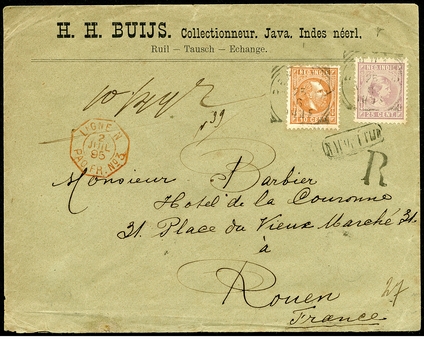 H. H. BUIJS. Collectionneur. Java. Indes néerl.
Ruil — Tausch — Echange.
NED-INDIE
NED-INDIE
25 CENT
No 39
LIGNE N
2
JUIL
95
PAQ. FR. No 3
R
Monsieur Barbier
Hotel de la Couronne
31. Place du Vieux Marché 31.
à
Rouen
France
27